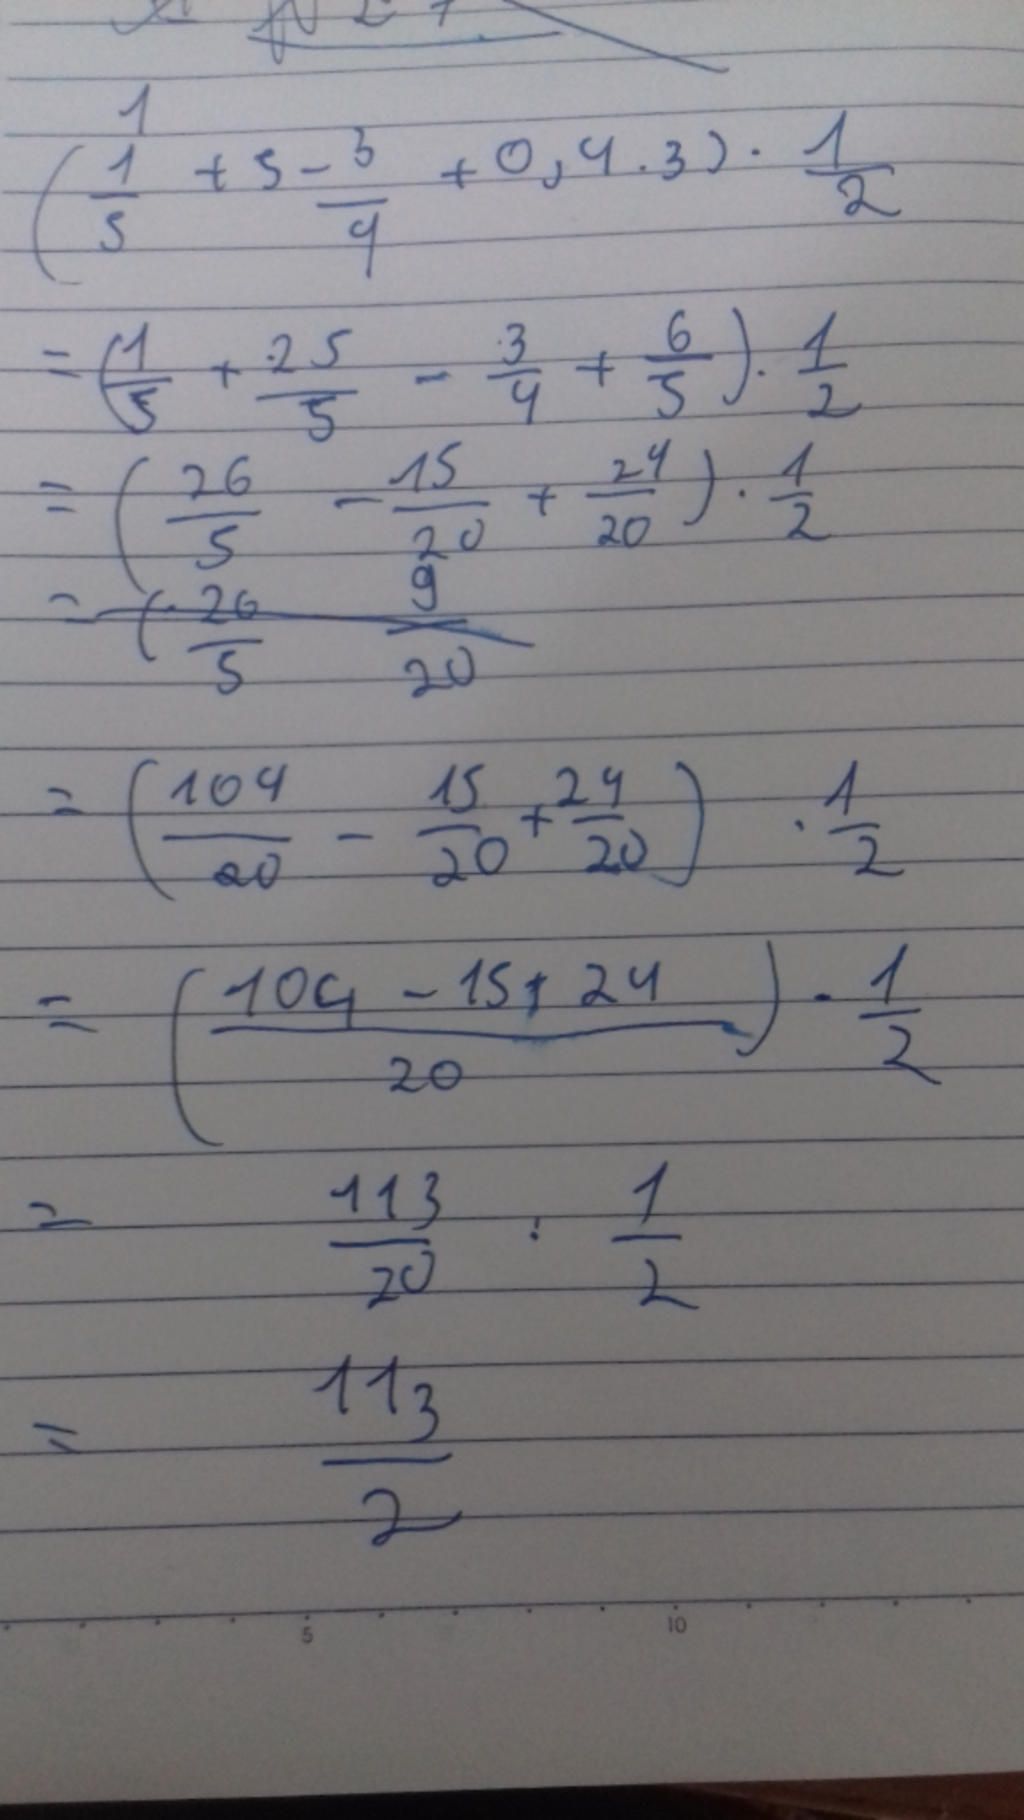 1
( 1/5 + 5 - 3/4 + 0,4.3) . 1/2
= ( 1/5 + 25/5 - 3/4 + 6/5 ) . 1/2
= ( 26/5 - 15/20 + 24/20 ) . 1/2
= ( 26/5 9/20
= ( 104/20 - 15/20 + 24/20 ) . 1/2
= ( 104 - 15 + 24 / 20 ) . 1/2
= 113/20 : 1/2
= 113/2
5 10